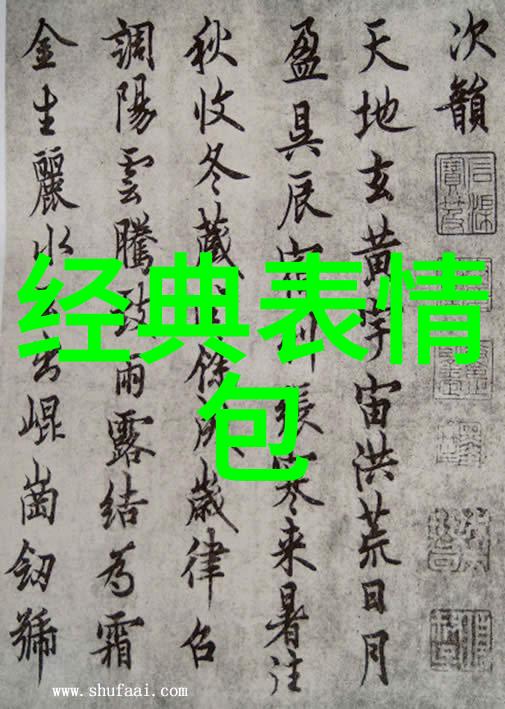 次韻
天地玄黃宇宙洪荒日月
盈昃辰宿列張寒来暑往
秋收冬藏餘成歲律召
調陽雲騰致雨露結為霜
金生麗水出崐崗劒號
经典表情
包
www.shufaai.com